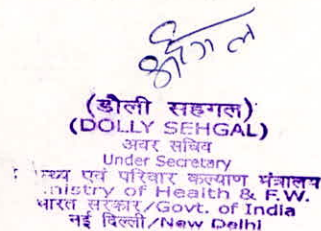 (डौली सहगल)
(DOLLY SEHGAL)
अवर सचिव
Under Secretary
एवं परिवार कल्याण मंत्रालय
nistry of Health & F.W.
भारत सरकार/Govt. of India
नई दिल्ली/New Delhi